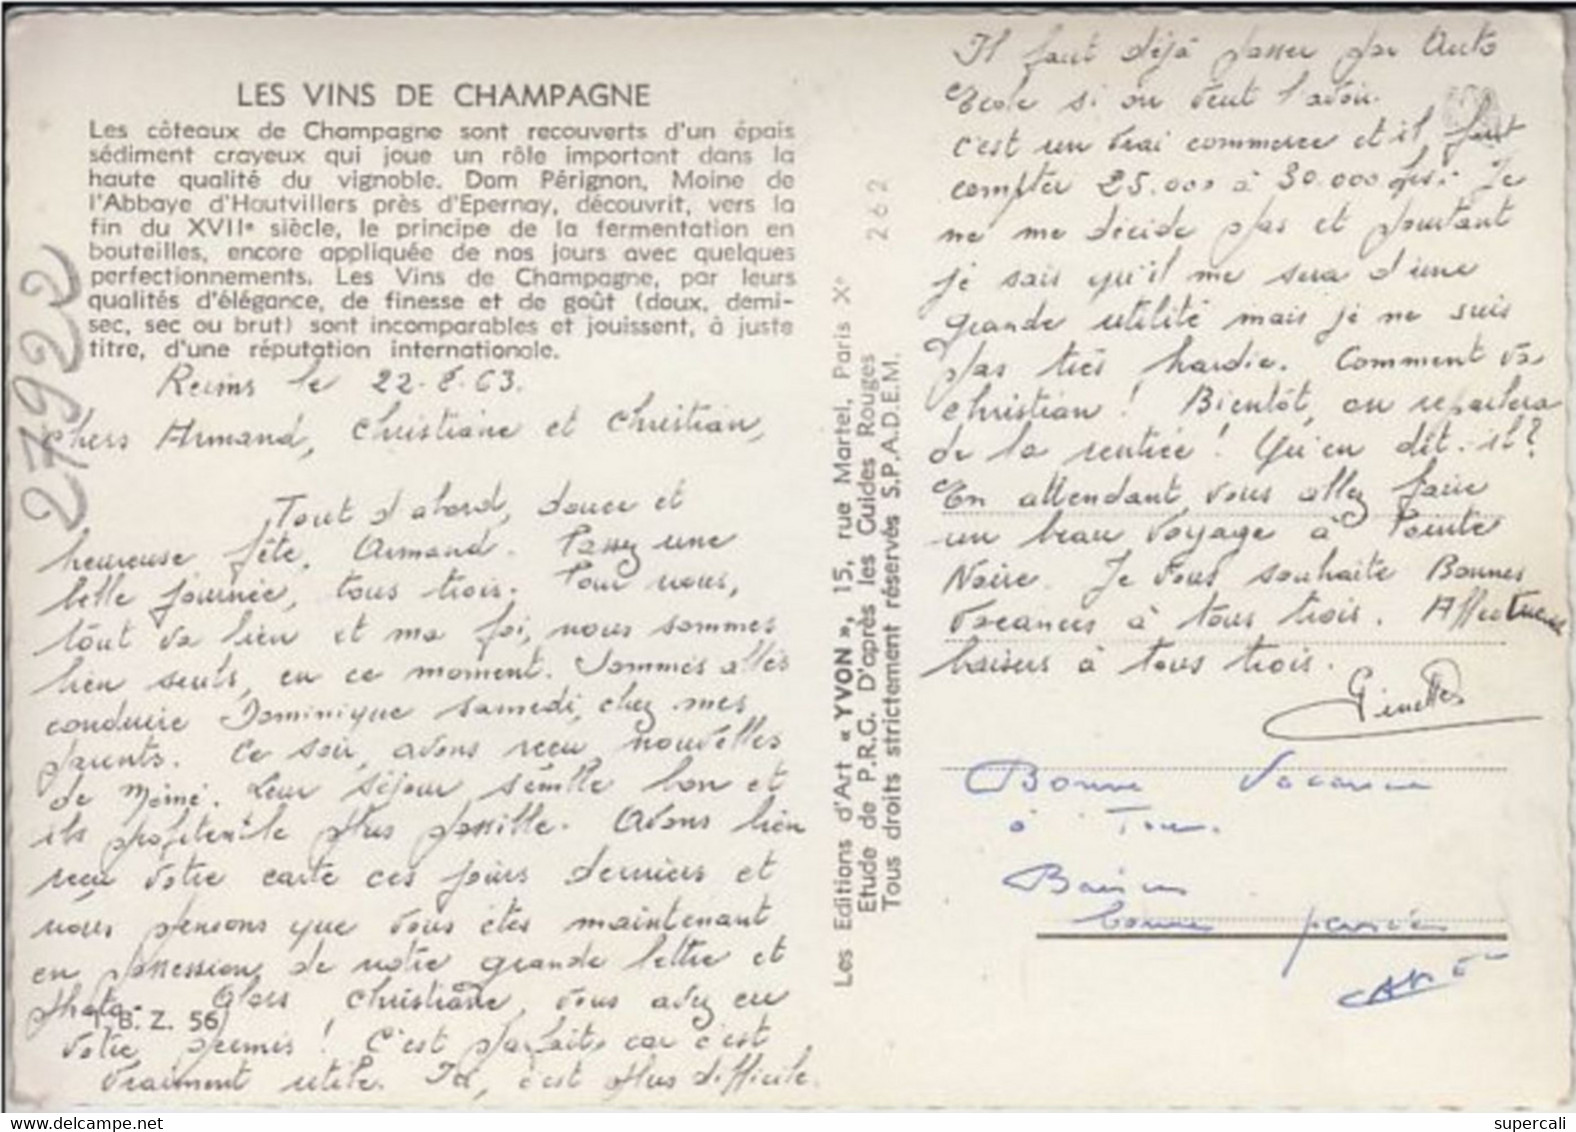 LES VINS DE CHAMPAGNE
Les côteaux de Champagne sont recouverts d'un épais
sédiment crayeux qui joue un rôle important dans la
haute qualité du vignoble. Dom Pérignon, Moine de
l'Abbaye d'Hautvillers près d'Epernay, découvrit, vers la
fin du XVIIe siècle, le principe de la fermentation en
bouteilles, encore appliquée de nos jours avec quelques
perfectionnements. Les Vins de Champagne, par leurs
qualités d'élégance, de finesse et de goût (doux, demi-
sec, sec ou brut) sont incomparables et jouissent, à juste
titre, d'une réputation internationale.
27922
Reims le 22-8-63.
Chers Armand, Christiane et Christian,
Tout d'abord, douce et
heureuse fête, Armand. Passez une
belle journée, tous trois. Pour nous,
tout va bien et ma foi, nous sommes
bien seuls, en ce moment. Sommes allés
conduire Dominique samedi, chez mes
parents. Ce soir, avons reçu nouvelles
de Mémé. Leur séjour semble bon et
ils profitent le plus possible. Avons bien
reçu votre carte ces jours derniers et
nous pensons que vous êtes maintenant
en possession de notre grande lettre et
photo. Alors Christiane, vous avez eu
I. B. Z. 56
votre permis ! C'est parfait, car c'est
vraiment utile. Ici, c'est plus difficile.
Les Editions d'Art « YVON », 15, rue Martel, Paris Xe
Etude de P.R.G. D'après les Guides Rouges
Tous droits strictement réservés S.P.A.D.E.M.
262
Il faut déjà passer par Auto
Ecole si on veut l'avoir.
c'est un vrai commerce et il faut
compter 25.000 à 30.000 frs. Je
ne me décide pas et pourtant
je sais qu'il me sera d'une
grande utilité mais je ne suis
pas très hardie. Comment va
Christian ! Bientôt, on reparlera
de la rentrée ! Qu'en dit-il ?
En attendant, vous allez faire
un beau voyage à Pointe
Noire. Je vous souhaite Bonnes
vacances à tous trois. Affectueux
baisers à tous trois.
Ginette
Bonne Vacance
à Tous.
Baisers
bonne pensée